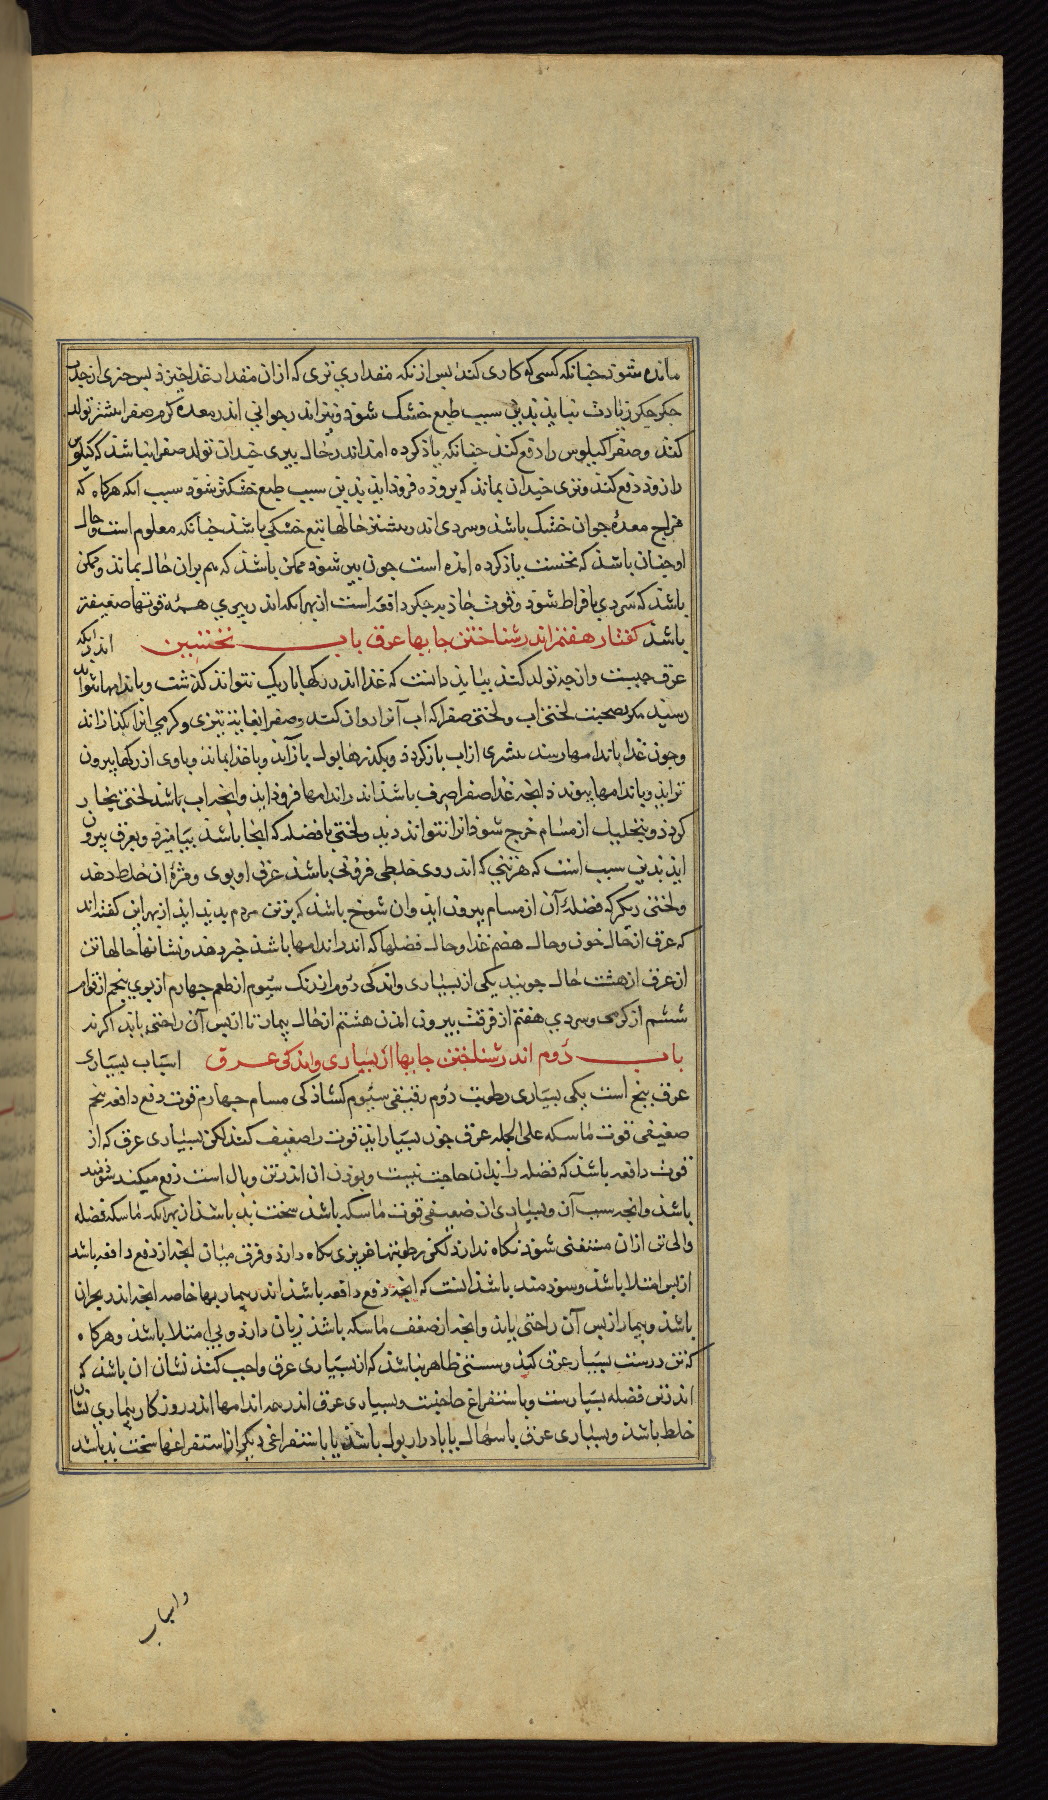 مانده شود چنانکه کسی که کاری کند بس ازنکه مقداری تری که ازان مقدار غذا خیزد بس چیزی از جذب
جکر جکر زیادت نیاید بدین سبب طبع خشک شود ونیز اندر جوانی اندر معده کرم صفرا بیشتر تولد
کند وصفرا کیلوس را دفع کند چنانکه یاد کرده امد اندر حال پیری چندان تولد صفرا نباشد که کیلوس
را زود دفع کند وتری چندان بماند که بروده فرود اید بدین سبب طبع خشکتر شود سبب انکه هرکاه که
مزاج معدۀ جوان خشک باشد وسردی اندر بیشتر حالها تبع خشکی باشد چنانکه معلوم است وحال
او چنان باشد که نخست یاد کرده امده است چون پیر شود ممکن باشد که هم بران حال بماند وممکن
باشد که سردی بافراط شود وقوت جاذبه جکر دافعه است ازبهرانکه اندر پیری همه قوتها ضعیفتر
باشد کفتار هفتم اندر شناختن حابها عرق باب نخستین اندرانکه
عرق چیست وازچه تولد کند بباید دانست که غذا اندر رکها باریک نتواند کذشت وباندامها نتواند
رسید مکر بصحبت لختی اب ولختی صفرا که اب آنرا روان کند وصفرا بغایت تیزی وکرمی انرا بکذاراند
وچون غذا باندامها رسد بیشری ازاب بازکردد وبکذرها بول بازآید وباغذا بماند وباوی ازرکها بیرون
تراید وباندامها بیوندد انچه غذا صفرا صرف باشد اندر اندامها فرود اید وانچه اب باشد لختی بخار
کردد وبتحلیل ازمسام خرج شود انرا نتواند دید ولختی با فضله که انجا باشد بیامیزد وبعرق بیرون
اید بدین سبب است که هرتنی که اندر وی خلطی فزونی باشد عرق او بوی ومزۀ ان خلط دهد
ولختی دیکر که فضلۀ آن ازمسام بیرون اید وان شوخ باشد که برتن مردم بدید اید ازبهر این کفته اند
که عرق ازحال خون وحال هضم غذا وحال فضلها که اندر اندامها باشد خبر دهد ونشانها حالها تن
از عرق ازهشت حال جویند یکی ازبسیاری واندکی دوم ازرنک سیوم ازطعم چهارم ازبوی پنجم ازقوام
ششم ازکرمی وسردی هفتم ازوقت بیرون امدن هشتم ازحال بیمار تا ازبس آن راحتی یابد اکرنه
باب دوم اندر شناختن حابها از بسیاری واندکی عرق اسباب بسیاری
عرق پنج است یکی بسیاری رطوبت دوم رقیقی سیوم کشادکی مسام چهارم قوت دفع دافعه پنجم
ضعیفی قوت ماسکه علی الجمله عرق چون بسیار اید قوت را ضعیف کند لکن بسیاری عرق که از
قوت دافعه باشد که فضله را بدان حاجت نیست وبودن ان اندرتن وبال است دفع میکند سودمند
باشد وانچه سبب آن وبسیاری ان ضعیفی قوت ماسکه باشد سخت بد باشد ازبهرانکه ماسکه فضله
والی تن ازان مستغنی شود نکاه ندارد لکن رطوبتها غریزی نکاه دارد وفرق میان انچه از دفع دافعه باشد
ازبس امتلا باشد وسودمند باشد انست که انچه دفع دافعه باشد اندر بیماریها خاصه انچه اندر بحران
باشد وبیمار ازبس آن راحتی یابد وانچه ازضعف ماسکه باشد زیان دارد وبی امتلا باشد وهرکاه
که تن درست بسیار عرق کند وسستی ظاهر نباشد که ازبسیاری عرق واجب کند نشان ان باشد که
اندر تن فضله بسیارست وباستفراغ حاجتست وبسیاری عرق اندر همه اندامها اندر روزکار بیماری نشان
خلط باشد وبسیاری عرق با سهال یا بادرار بول باشد یا باستفراغی دیکر ازاستفراغها سخت بد باشد
واسباب